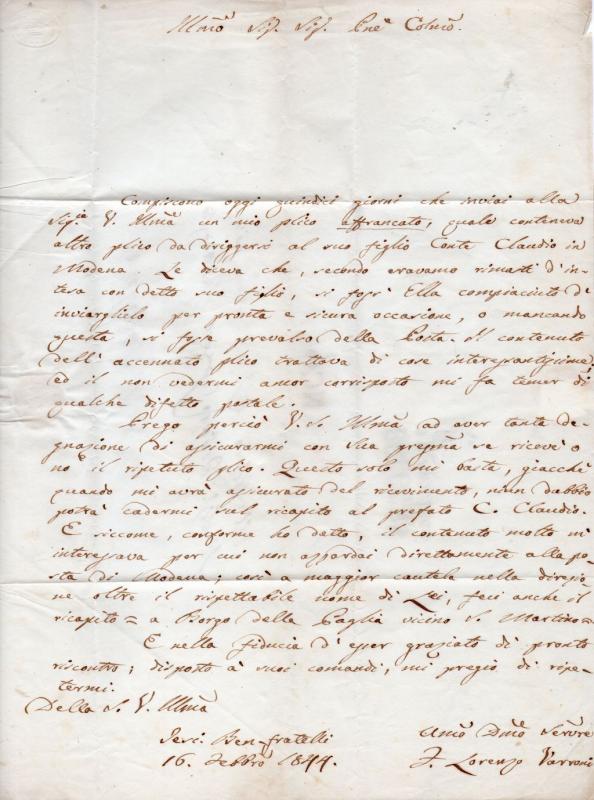 Illmõ Sig. Sig. Pnẽ Colmõ.
Compiscono oggi quindici giorni che inviai alla
Sig.ie V. Illmã un mio plico affrancato, quale conteneva
altro plico da diriggersi al suo figlio Conte Claudio in
Modena. Le diceva che, secondo eravamo rimasti d'in-
tesa con detto suo figlio, si fosse Ella compiaciuto d'
inviarglielo per pronta e sicura occasione, o mancando
questa, si fosse prevalso della Posta. Il contenuto
dell'accennato plico trattava di cose interessantissime,
ed il non vedermi ancor corrisposto mi fa temer di
qualche difetto postale.
Prego perciò V. S. Illmã ad aver tanta de-
gnazione di assicurarmi con sua pregmã se ricevè o
nò il ripetuto plico. Questo solo mi basta, giacchè
quando mi avrà assicurato del ricevimento, niun dubbio
potrà cadermi sul ricapito al prefato C. Claudio.
E siccome, conforme ho detto, il contenuto molto m'
interessava per cui non azzardai direttamente alla po-
sta di Modena; così a maggior cautela nella direzio-
ne oltre il rispettabile nome di Lei, feci anche il
ricapito = a Borgo della Paglia vicino S. Martino =
E nella fiducia d'esser graziato di pronto
riscontro; disposto a' suoi comandi, mi pregio di ripe-
termi.
Della S. V. Illmã
Jesi. Ben-fratelli
16. Febbro 1844.
Umõ Dmõ Servre
F. Lorenzo Varroni